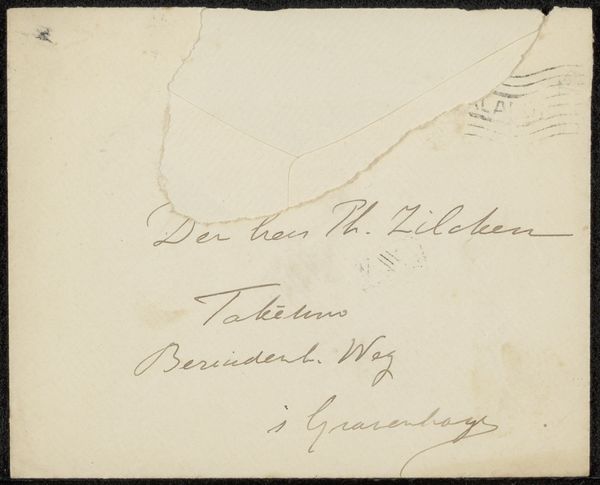 Den heer Ph. Zilcken
Bezuidenh. Weg
s Gravenhage